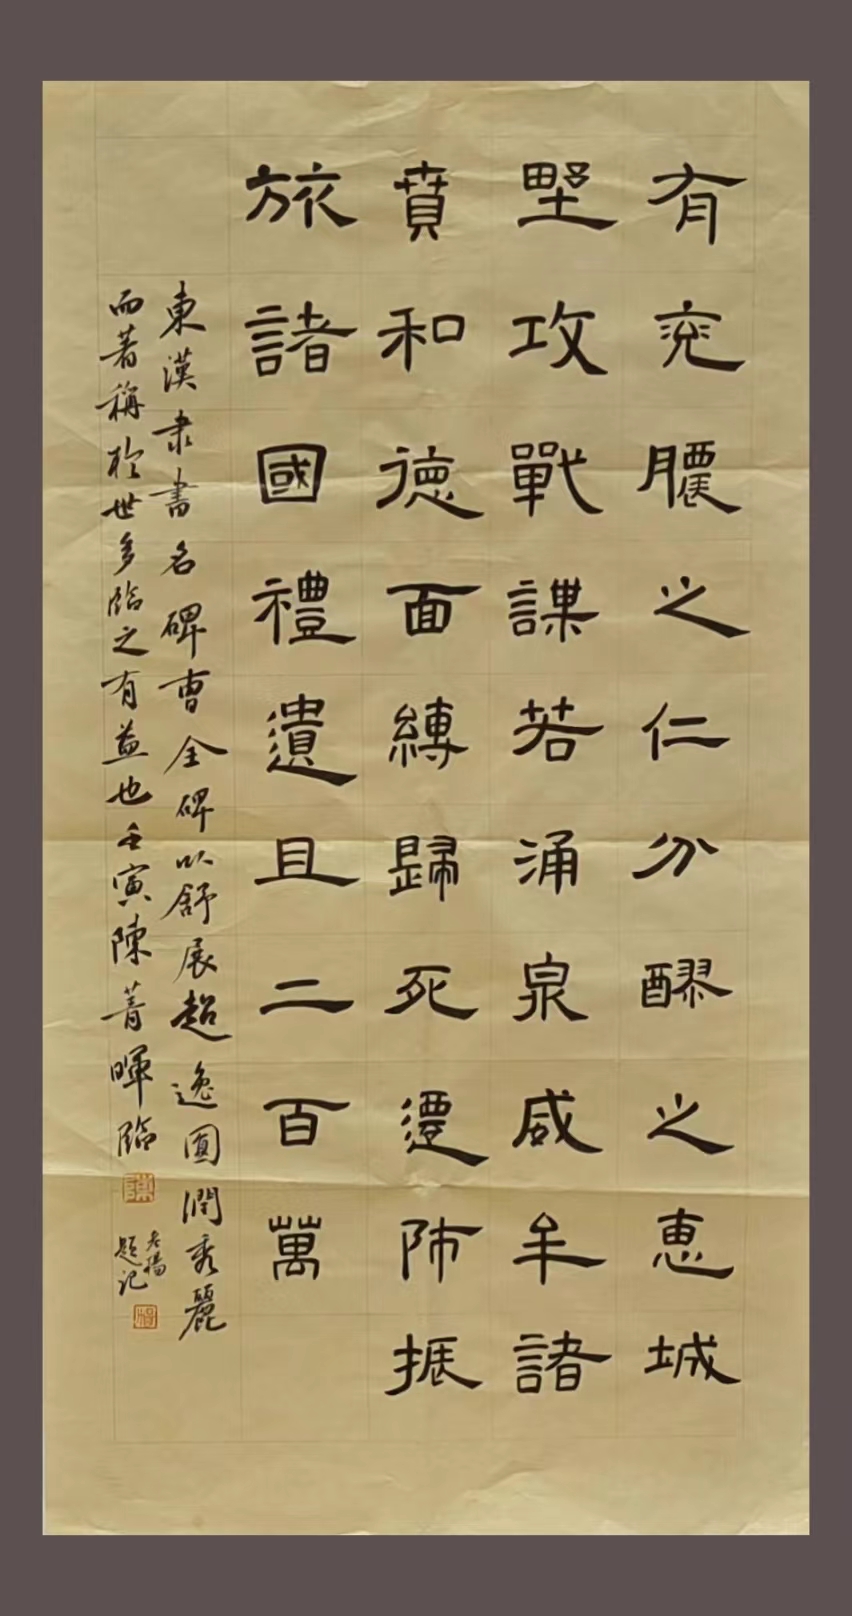 有兖膿之仁分醪之惠城
野攻戰謀若涌泉威牟諸
賁和德面縛歸死還師振
旅諸國禮遺且二百萬
東漢隶書名碑曹全碑以舒展超逸圓潤秀麗
而著稱於世多臨之有益也壬寅陳菁暉臨
老楊
題記